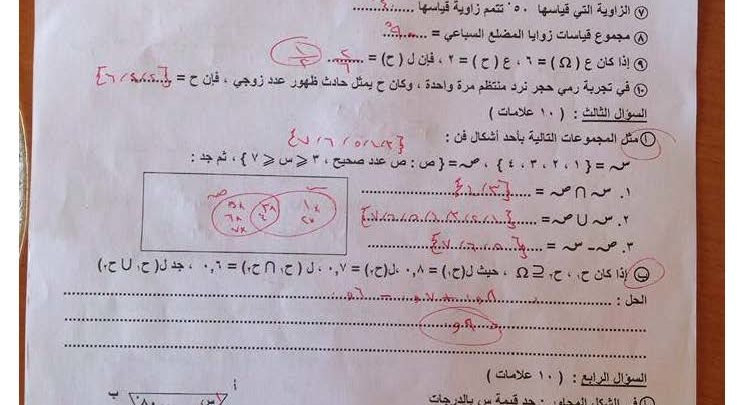 ٧ الزاوية التي قياسها ٥٠° تتمم زاوية قياسها .....٤٠
٨ مجموع قياسات زوايا المضلع السباعي = ..........
٩ إذا كان ع ( Ω ) = ٦ ، ع ( ح ) = ٢ ، فإن ل ( ح ) = ٢/٦ = ١/٣
١٠ في تجربة رمي حجر نرد منتظم مرة واحدة ، وكان ح يمثل حادث ظهور عدد زوجي ، فإن ح = {٢، ٤، ٦}
السؤال الثالث : ( ١٠ علامات )
أ) مثل المجموعات التالية بأحد أشكال فن : {٣، ٤، ٥، ٦، ٧}
س = { ١ ، ٢ ، ٣ ، ٤ } ، ص = { ص : ص عدد صحيح ، ٣ ⩽ س ⩽ ٧ } ، ثم جد :
١. س ∩ ص = {٣، ٤}
٢. س ∪ ص = {١، ٢، ٣، ٤، ٥، ٦، ٧}
٣. ص - س = {٥، ٦، ٧}
س ص
١× ٢× ٣× ٤× ٥× ٦× ٧×
ب) إذا كان ح١ ، ح٢ ⊆ Ω ، حيث ل(ح١) = ٠,٨ ، ل(ح٢) = ٠,٧ ، ل ( ح١ ∩ ح٢) = ٠,٦ ، جد ل( ح١ ∪ ح٢)
الحل : ٠,٨ + ٠,٧ - ٠,٦
٠,٩
السؤال الرابع : ( ١٠ علامات )
أ) في الشكل المجاور : جد قيمة س بالدرجات
أ ب
س ٨٠